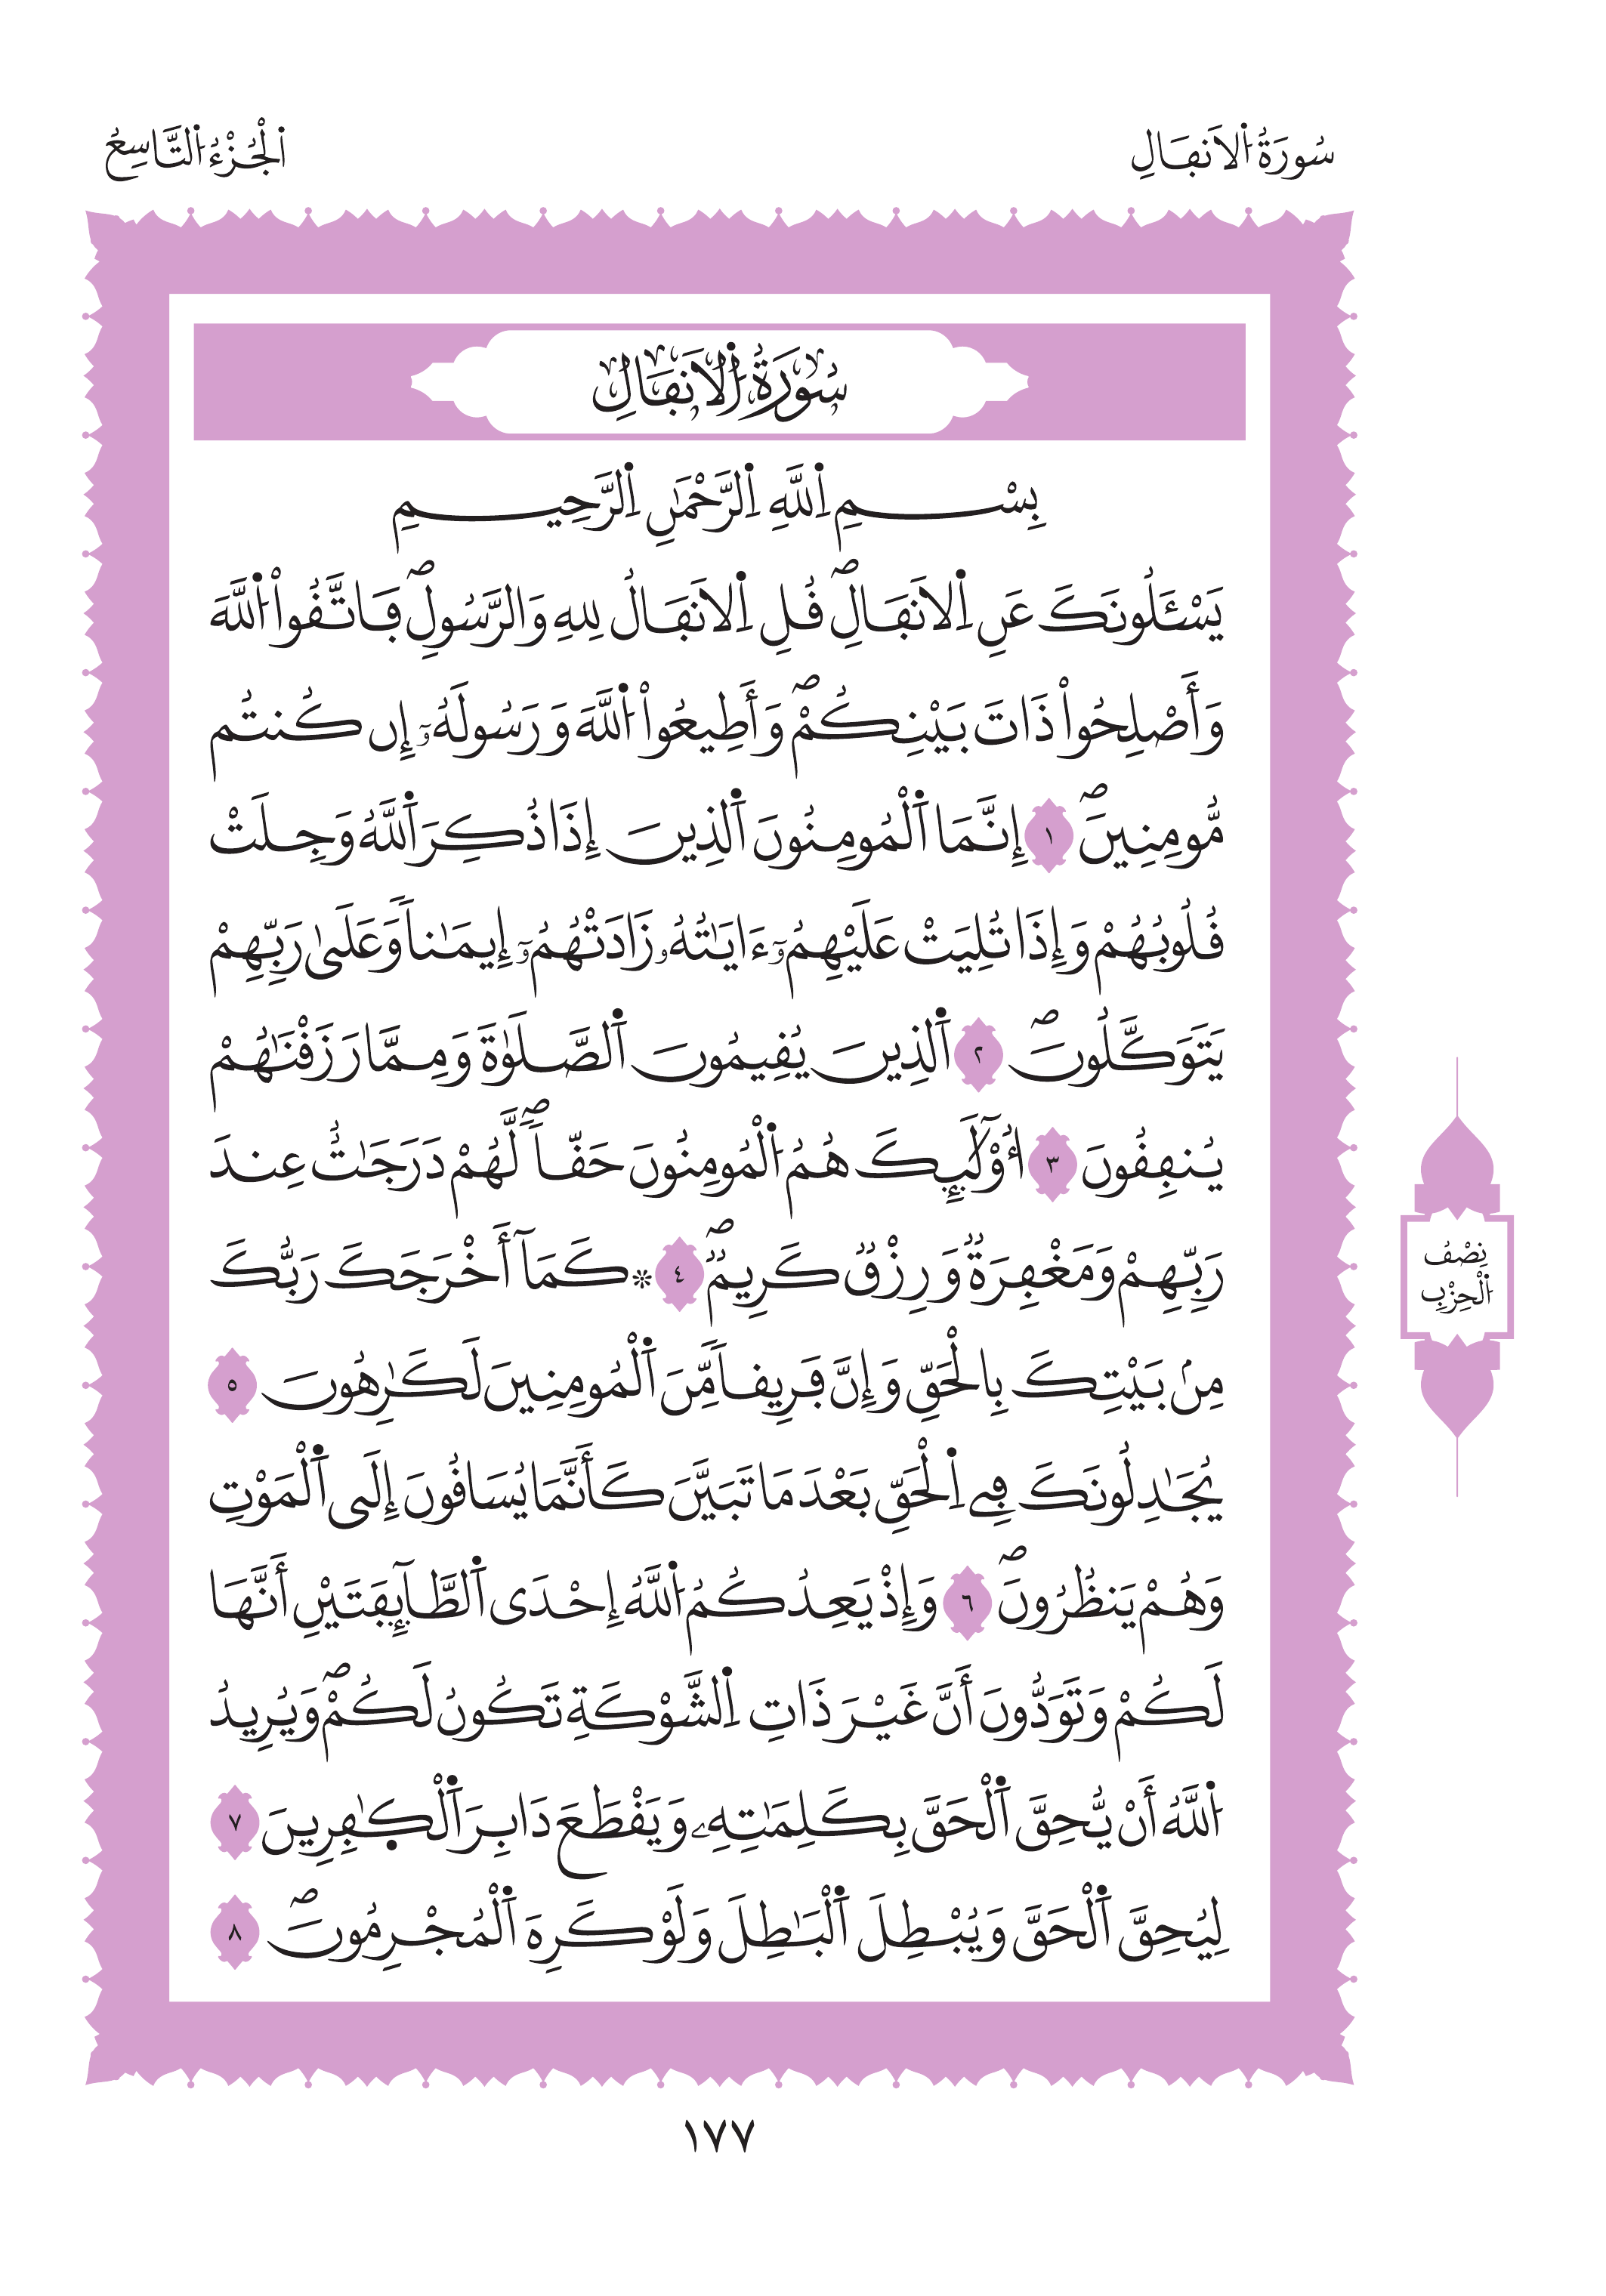 سُورَةُ اُ۬لَانفَالِ
اَ۬لْجُزْءُ اُ۬لتَّاسِعُ
سُورَةُ اُ۬لَانفَالِ
بِسْمِ اِ۬للَّهِ اِ۬لرَّحْمَٰنِ اِ۬لرَّحِيمِ
يَسْـَٔلُونَكَ عَنِ اِ۬لَانفَالِۖ قُلِ اِ۬لَانفَالُ لِلهِ وَالرَّسُولِۖ فَاتَّقُواْ اُ۬للَّهَ
وَأَصْلِحُواْ ذَاتَ بَيْنِكُمْۖ وَأَطِيعُواْ اُ۬للَّهَ وَرَسُولَهُۥٓ إِن كُنتُم
مُّومِنِينَۖ ١ إِنَّمَا اَ۬لْمُومِنُونَ اَ۬لذِينَ إِذَا ذُكِرَ اَ۬للَّهُ وَجِلَتْ
قُلُوبُهُمْ وَإِذَا تُلِيَتْ عَلَيْهِمُۥٓ ءَايَٰتُهُۥ زَادَتْهُمُۥٓ إِيمَٰناٗ وَعَلَىٰ رَبِّهِمْ
يَتَوَكَّلُونَۖ ٢ اَ۬لذِينَ يُقِيمُونَ اَ۬لصَّلَوٰةَ وَمِمَّا رَزَقْنَٰهُمْ
يُنفِقُونَ ٣ أُوْلَٰٓئِكَ هُمُ اُ۬لْمُومِنُونَ حَقّاٗۖ لَّهُمْ دَرَجَٰتٌ عِندَ
رَبِّهِمْ وَمَغْفِرَةٞ وَرِزْقٞ كَرِيمٞۖ ٤ ۞ كَمَآ أَخْرَجَكَ رَبُّكَ
مِنۢ بَيْتِكَ بِالْحَقِّ وَإِنَّ فَرِيقاٗ مِّنَ اَ۬لْمُومِنِينَ لَكَٰرِهُونَ ٥
يُجَٰدِلُونَكَ فِے اِ۬لْحَقِّ بَعْدَ مَا تَبَيَّنَ كَأَنَّمَا يُسَاقُونَ إِلَى اَ۬لْمَوْتِ
وَهُمْ يَنظُرُونَۖ ٦ وَإِذْ يَعِدُكُمُ اُ۬للَّهُ إِحْدَى اَ۬لطَّآئِفَتَيْنِ أَنَّهَا
لَكُمْ وَتَوَدُّونَ أَنَّ غَيْرَ ذَاتِ اِ۬لشَّوْكَةِ تَكُونُ لَكُمْۖ وَيُرِيدُ
اُ۬للَّهُ أَنْ يُّحِقَّ اَ۬لْحَقَّ بِكَلِمَٰتِهِۦ وَيَقْطَعَ دَابِرَ اَ۬لْكٰ۪فِرِينَ ٧
لِيُحِقَّ اَ۬لْحَقَّ وَيُبْطِلَ اَ۬لْبَٰطِلَ وَلَوْ كَرِهَ اَ۬لْمُجْرِمُونَۖ ٨
نِصْفُ
اُ۬لْحِزْبِ
١٧٧